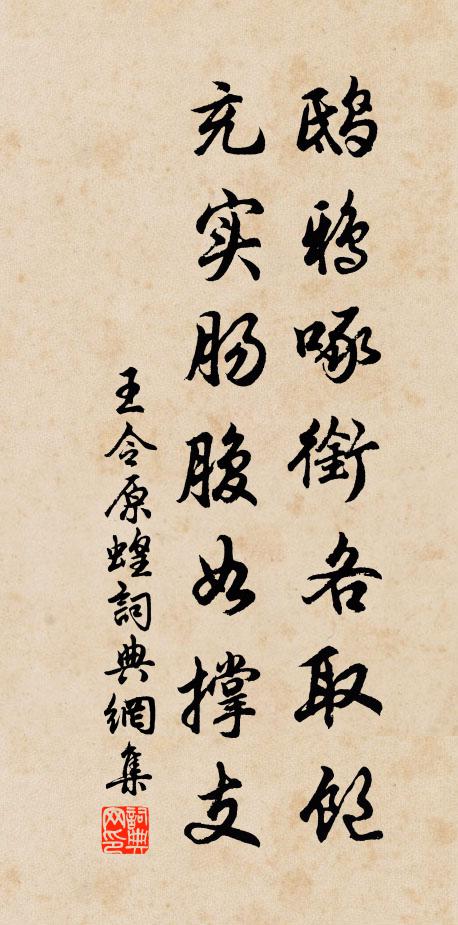 鸱鸦啄衔各取饱
充实肠腹如撑支
王令原蝗詞典網集
詞典网印